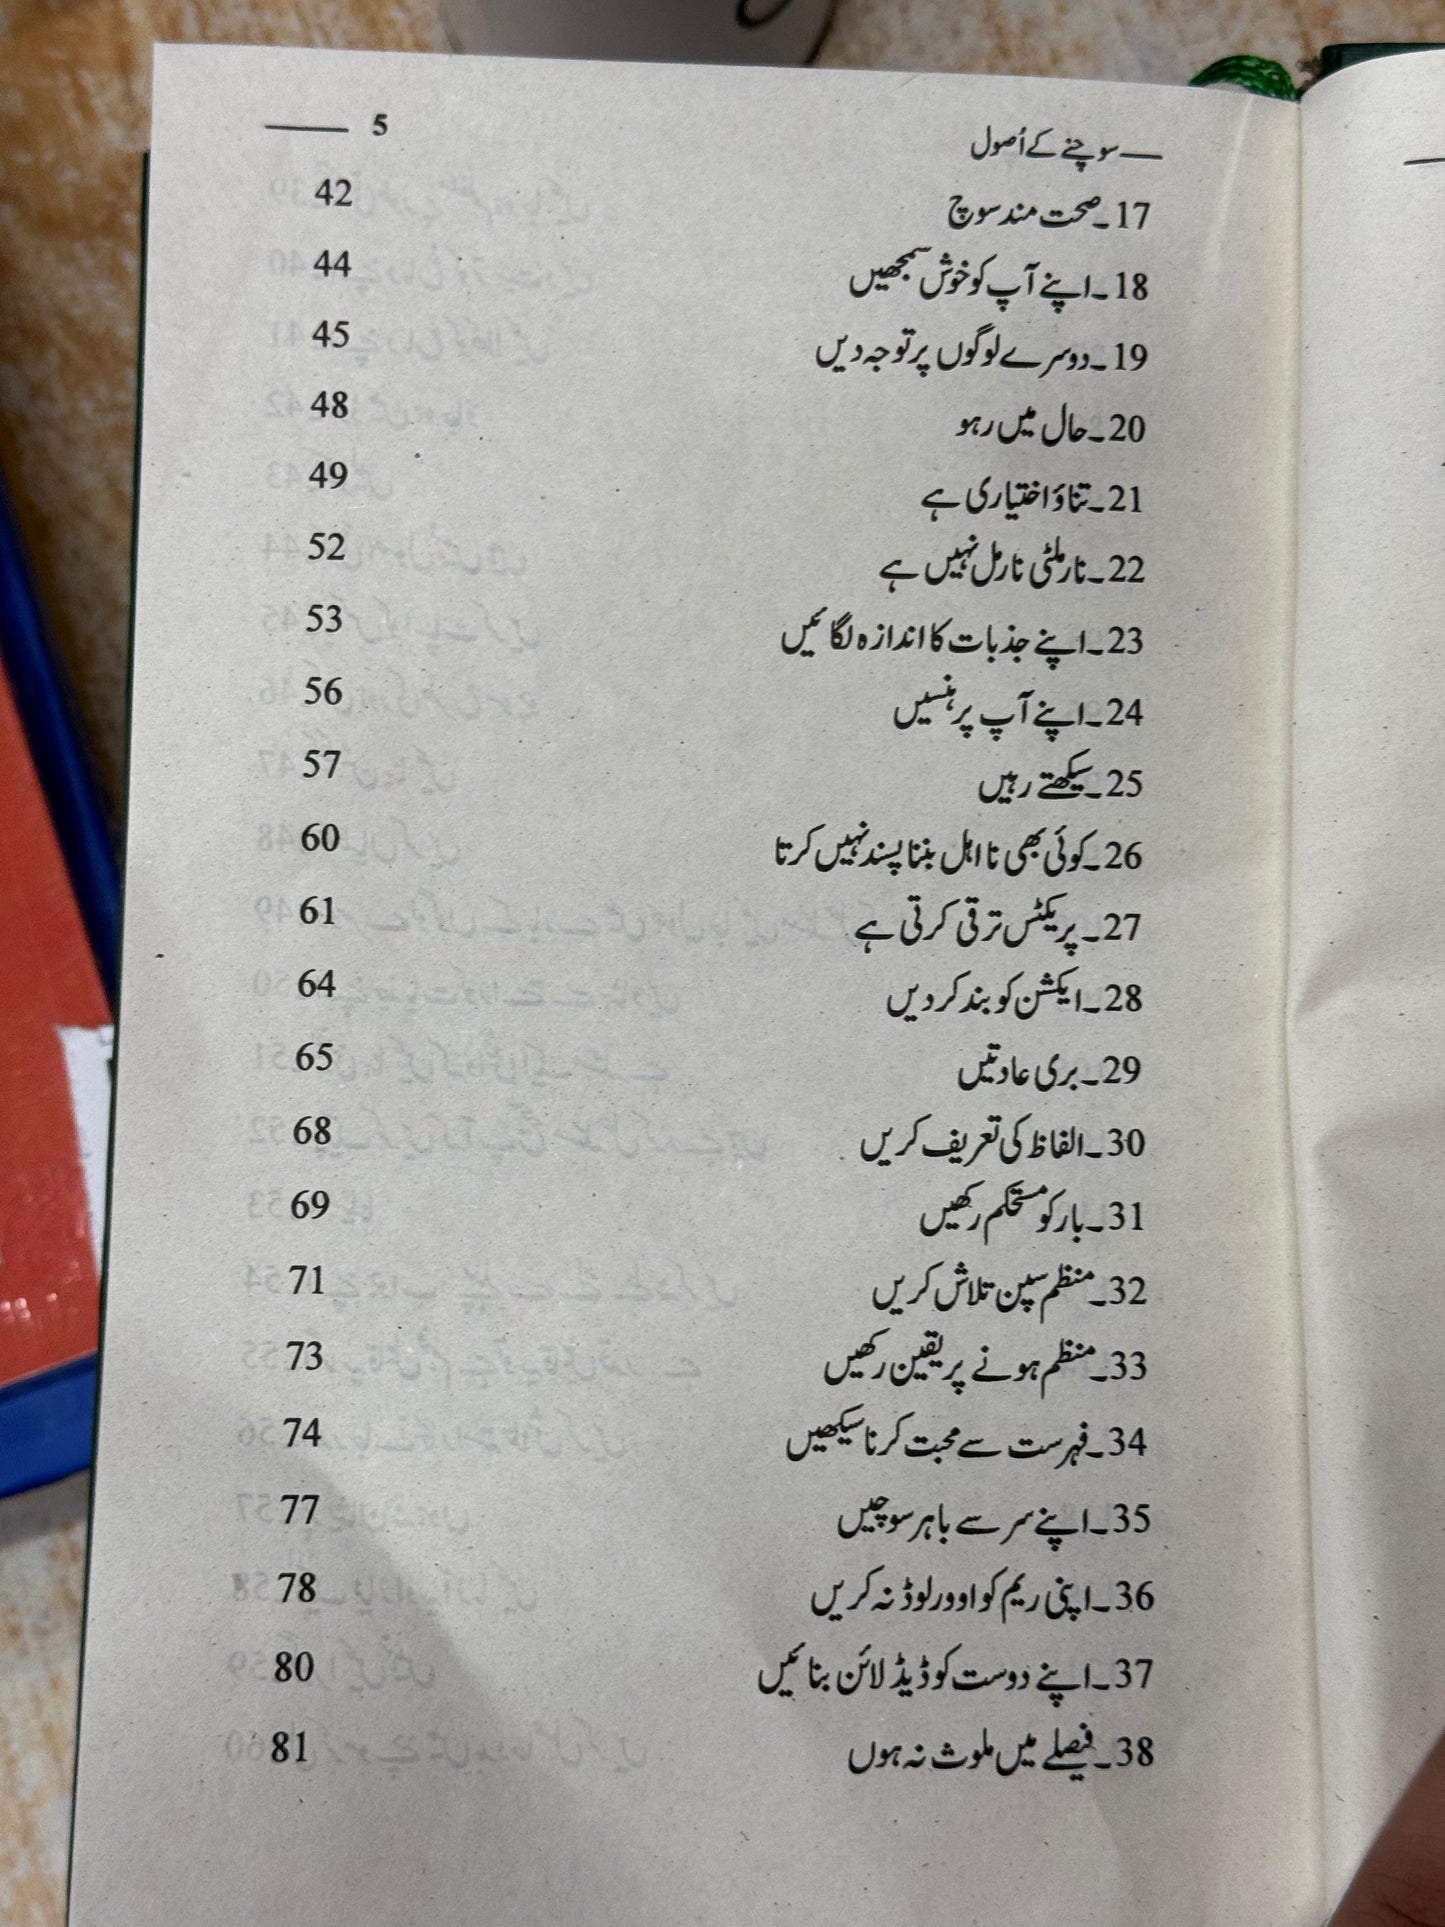 سوچنے کے اُصول 5
17۔صحت مند سوچ 42
18۔اپنے آپ کو خوش سمجھیں 44
19۔دوسرے لوگوں پر توجہ دیں 45
20۔حال میں رہو 48
21۔تناؤ اختیاری ہے 49
22۔نارملٹی نارمل نہیں ہے 52
23۔اپنے جذبات کا اندازہ لگائیں 53
24۔اپنے آپ پر ہنسیں 56
25۔سیکھتے رہیں 57
26۔کوئی بھی نااہل بننا پسند نہیں کرتا 60
27۔پریکٹس ترقی کرتی ہے 61
28۔ایکشن کو بند کر دیں 64
29۔بری عادتیں 65
30۔الفاظ کی تعریف کریں 68
31۔بار کو مستحکم رکھیں 69
32۔منظم سپن تلاش کریں 71
33۔منظم ہونے پر یقین رکھیں 73
34۔فہرست سے محبت کرنا سیکھیں 74
35۔اپنے سر سے باہر سوچیں 77
36۔اپنی ریم کو اوورلوڈ نہ کریں 78
37۔اپنے دوست کو ڈیڈ لائن بنائیں 80
38۔فیصلے میں ملوث نہ ہوں 81